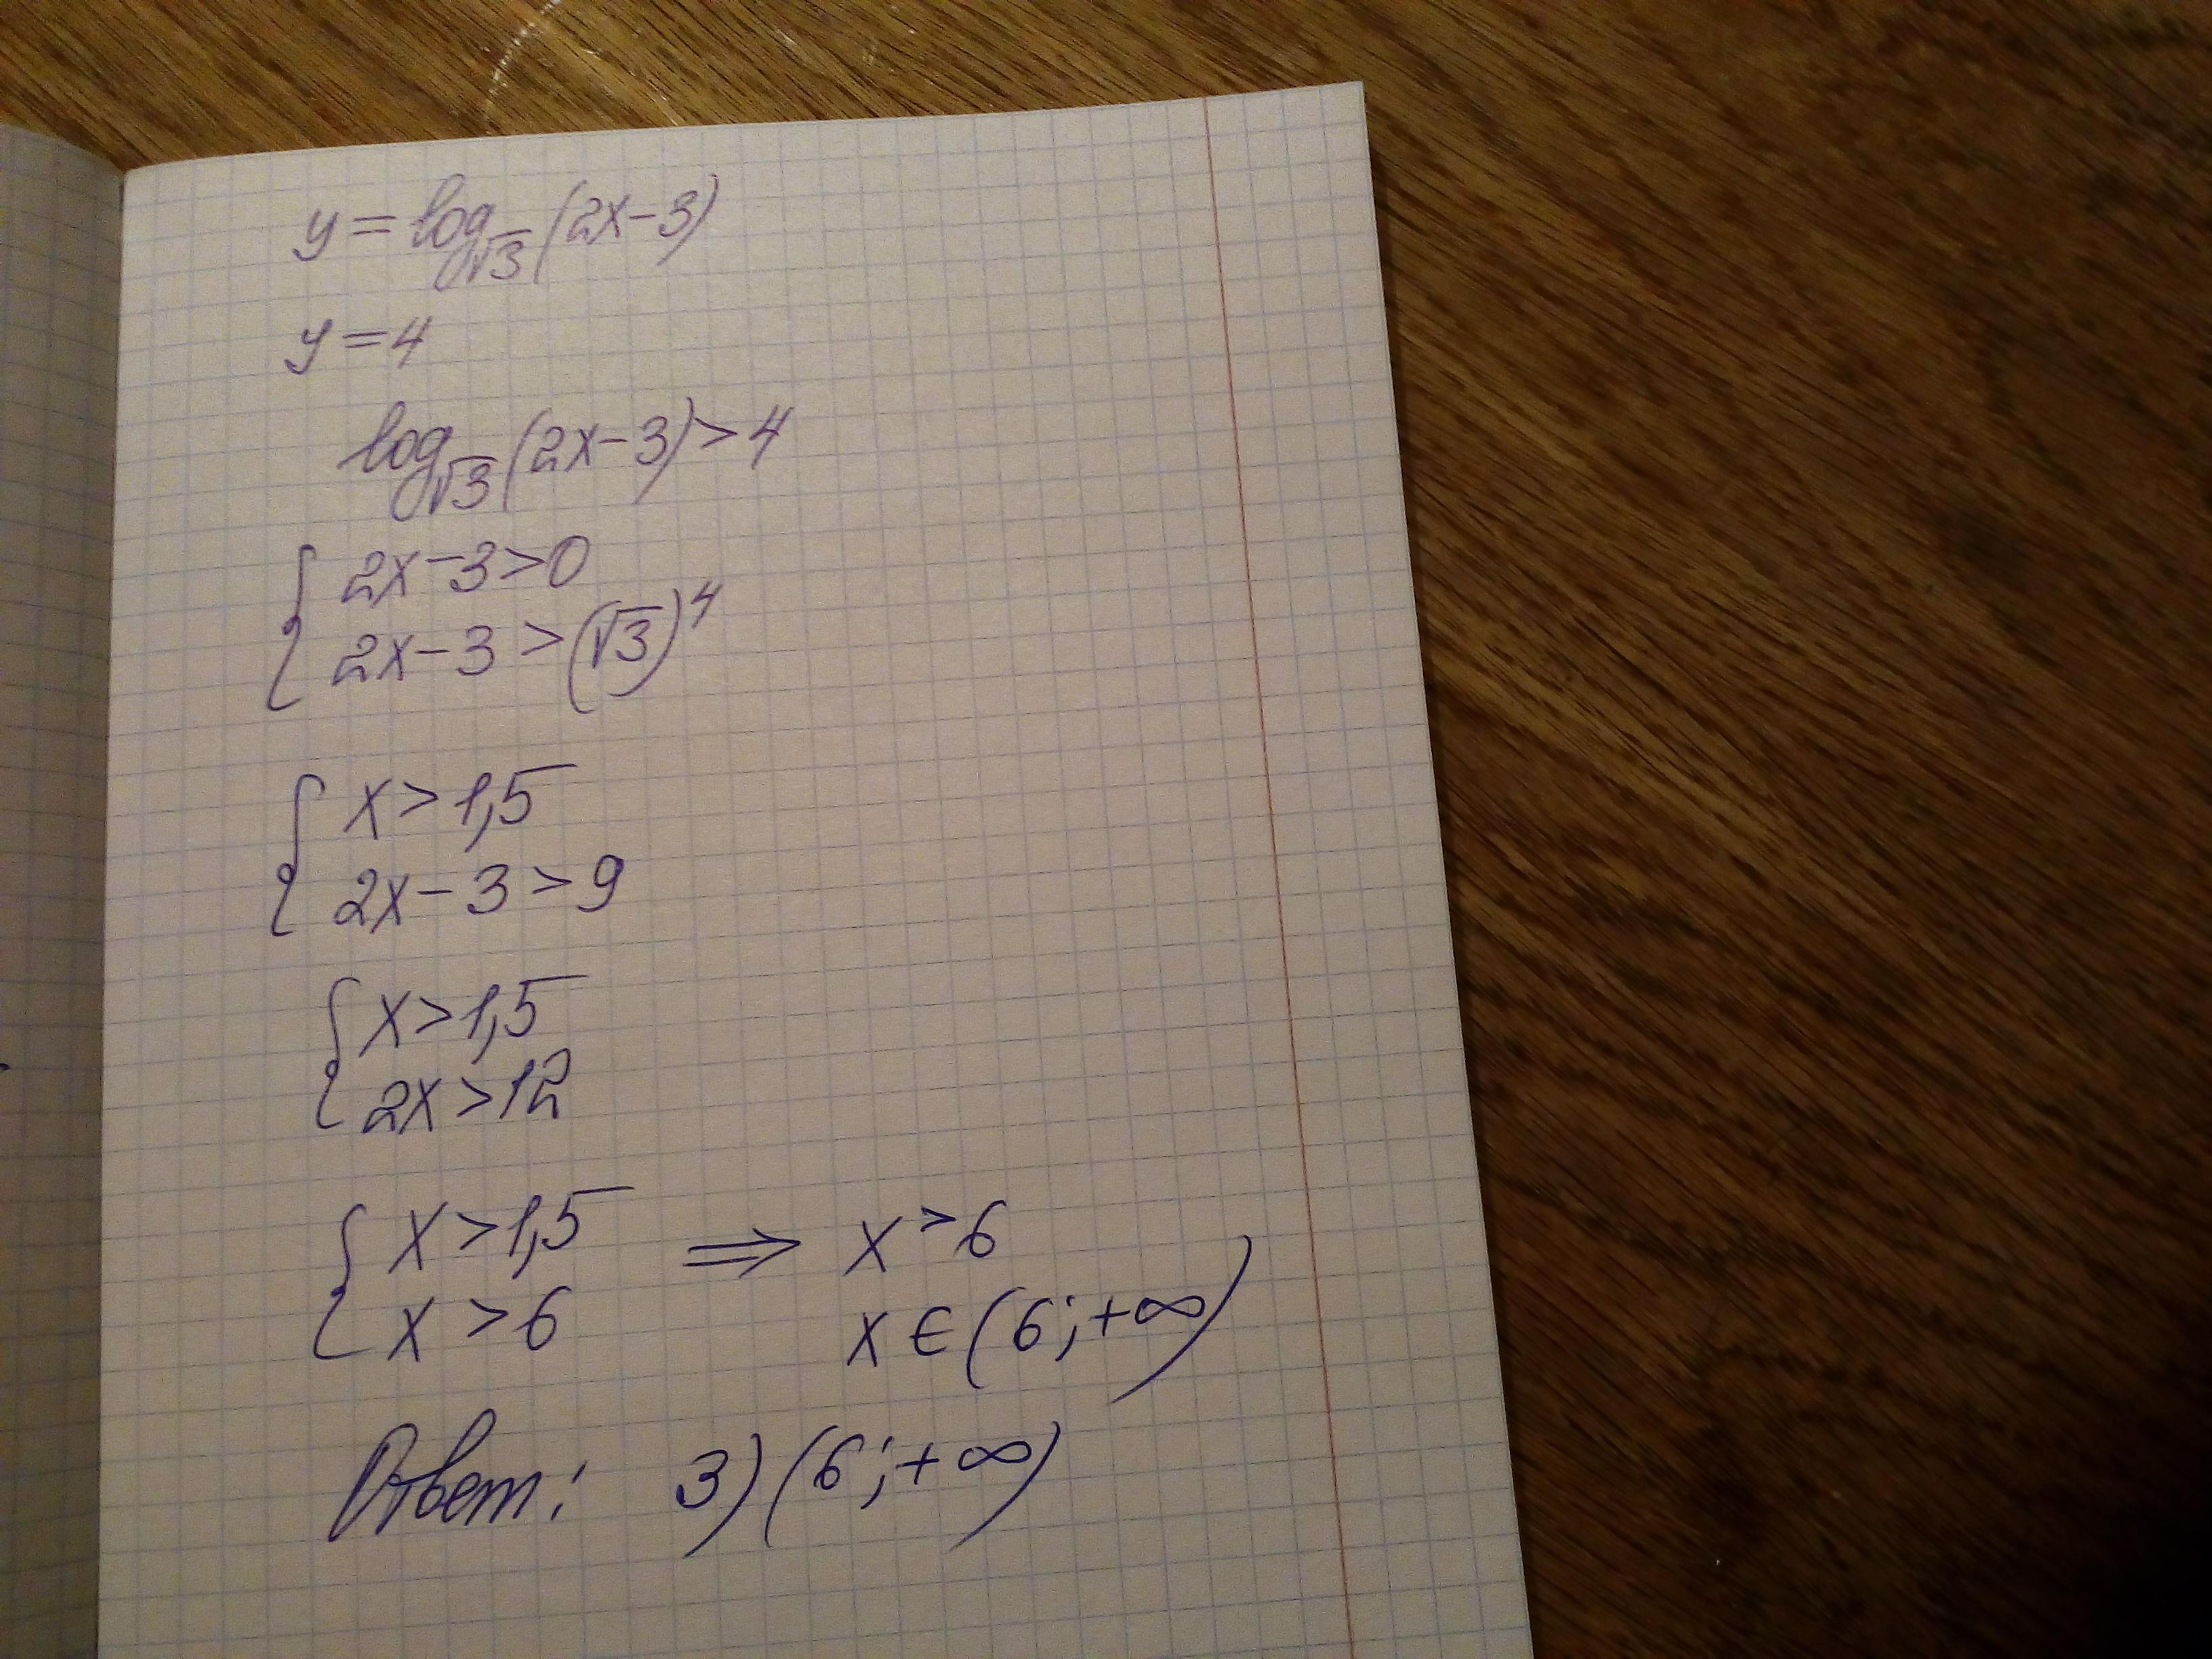 y = log_√3 (2x-3)
y = 4
log_√3 (2x-3) > 4
{ 2x-3>0
2x-3 > (√3)^4
{ x > 1,5
2x-3 > 9
{ x > 1,5
2x > 12
{ x > 1,5 ⇒ x > 6
x > 6 x ∈ (6;+∞)
Ответ: 3) (6;+∞)